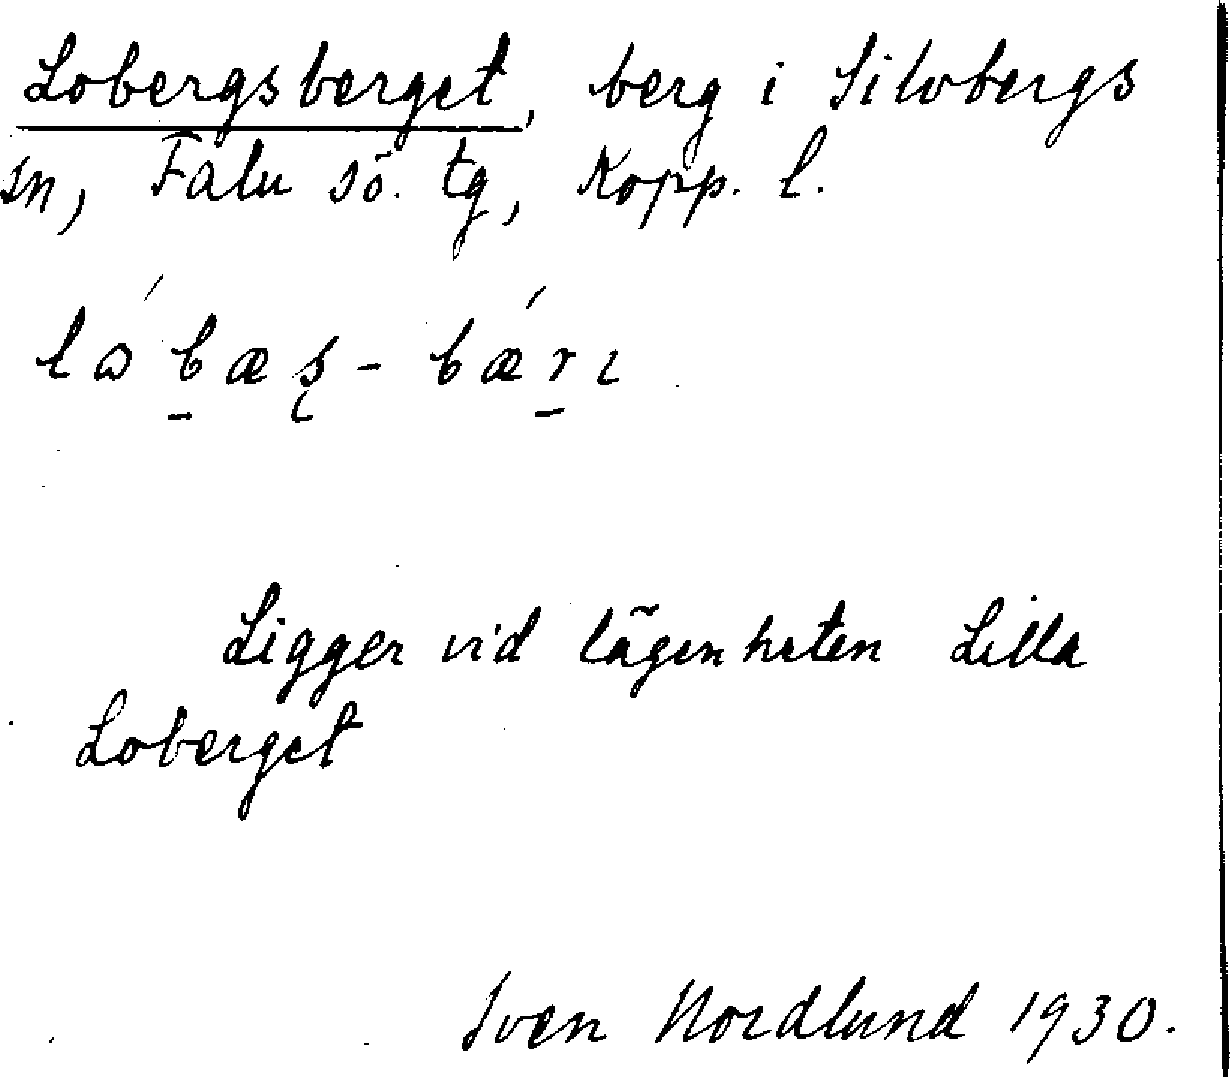 Lobergsberget, berg i Silvbergs
sn, Falu sö. tg, Kopp. l.
lǝ́bæʂ-bǽrɩ
Ligger vid lägenheten Lilla
Loberget
Sven Nordlund 1930.